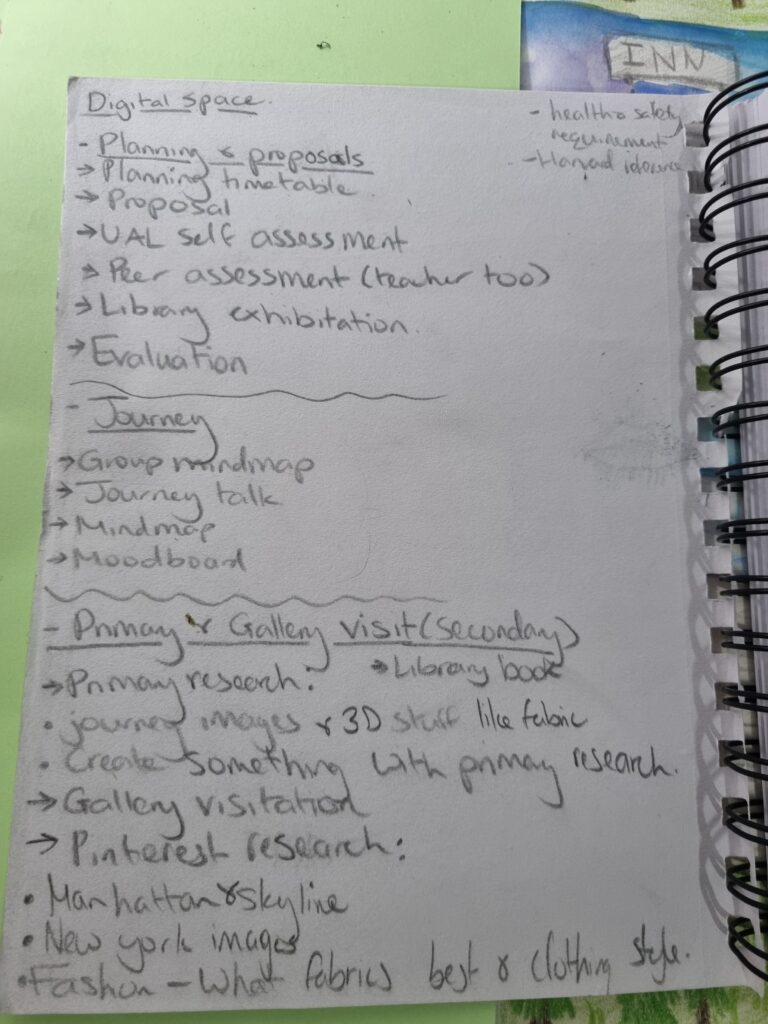 INN
Digital space.
- health & safety
requirement
- Harvard
- Planning & proposals
→ Planning timetable
→ Proposal
→ UAL self assessment
→ Peer assessment (teacher too)
→ Library exhibitation.
→ Evaluation
- Journey
→ Group mindmap
→ Journey talk
→ Mindmap
→ Moodboard
- Primary & Gallery visit (seconday)
→ Primary research:
→ Library book
• journey images & 3D stuff like fabric
• Create something with primary research.
→ Gallery visitation
→ Pinterest research:
• Manhattan & skyline
• New york images
• Fashion - What fabrics best & clothing style.